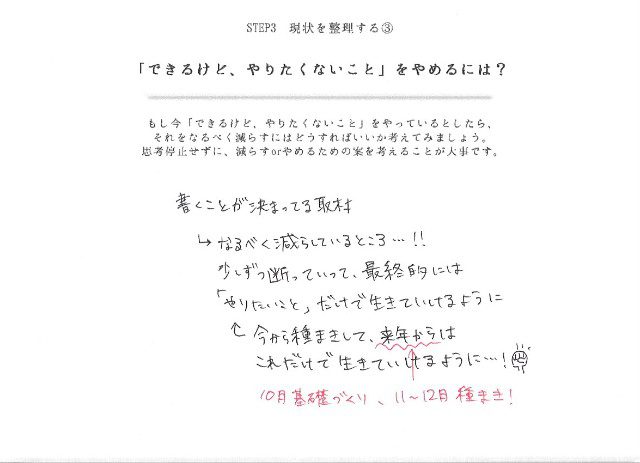 STEP3 現状を整理する③
「できるけど、やりたくないこと」をやめるには？
もし今「できるけど、やりたくないこと」をやっているとしたら、
それをなるべく減らすにはどうすればいいか考えてみましょう。
思考停止せずに、減らすorやめるための案を考えることが大事です。
書くことが決まってる取材
↳なるべく減らしているところ…!!
少しずつ断っていって、最終的には
「やりたいこと」だけで生きていけるように
↖今から種まきして、来年からは
これだけで生きていけるように…!
10月基礎づくり、11〜12月種まき!